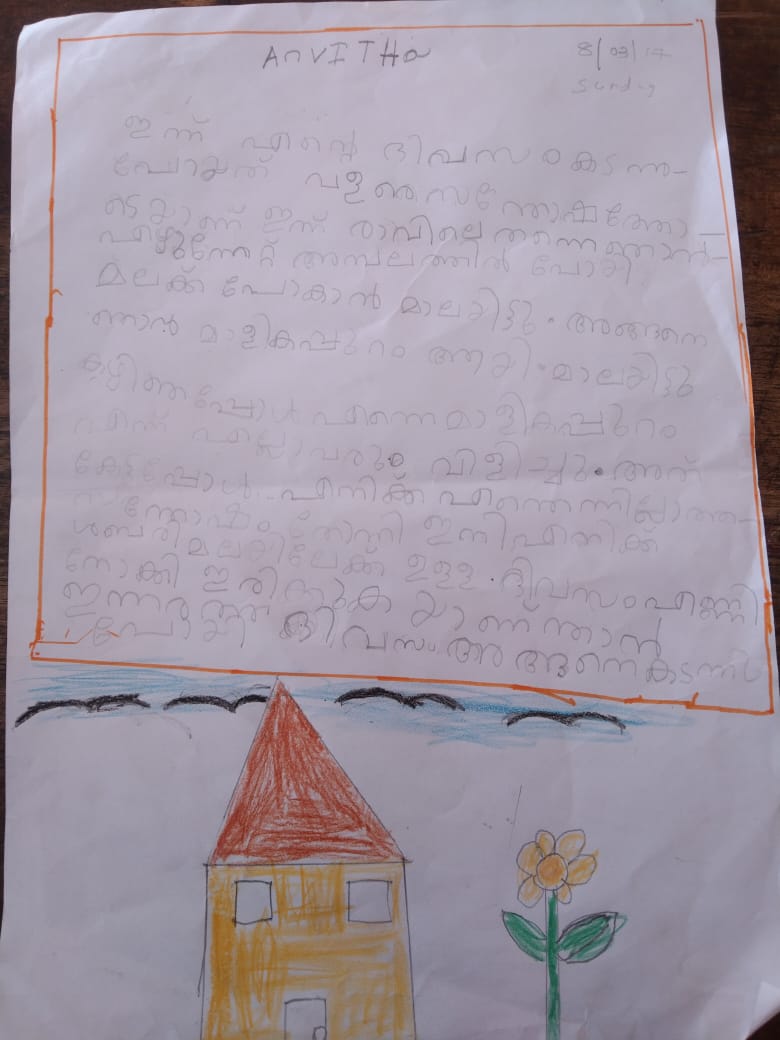 ANVITHA
8/03/17
Sunday
ഇന്ന് എന്റെ ദിവസം കടന്നു-
പോയത് വളരെ സന്തോഷത്തോ-
ടെയാണ് ഇന്ന് രാവിലെ തന്നെ ഞാൻ-
എഴുന്നേറ്റ് അമ്പലത്തിൽ പോയി.
മലക്ക് പോകാൻ മാലയിട്ടു. അങ്ങനെ
ഞാൻ മാളികപ്പുറം ആയി. മാലയിട്ടു
കഴിഞ്ഞപ്പോൾ എന്നെ മാളികപ്പുറം
എന്ന് എല്ലാവരും വിളിച്ചു. അത്
കേട്ടപ്പോൾ എനിക്ക് എന്തെന്നില്ലാത്ത-
സന്തോഷം തോന്നി ഇനി എനിക്ക്
ശബരിമലയിലേക്ക് ഉള്ള ദിവസം എണ്ണി
നോക്കി ഇരിന്നുക യാണ് ഞാൻ
ഇന്നത്തെ
പോയി ദിവസം അങ്ങനെ കടന്നു